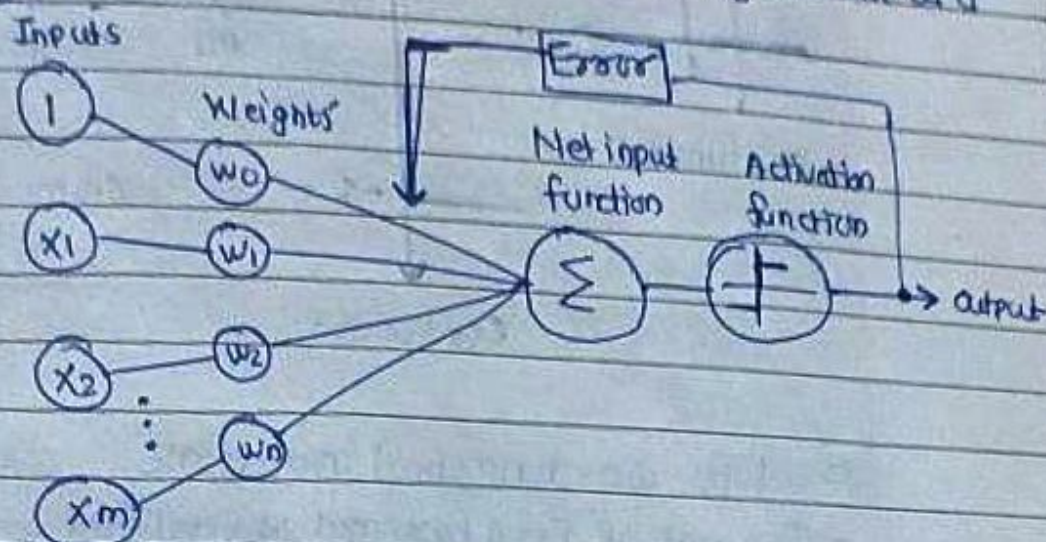 Inputs
Error
1
Weights
Net input
function
Activation
function
W0
X1
W1
Σ
output
X2
W2
Wn
Xm